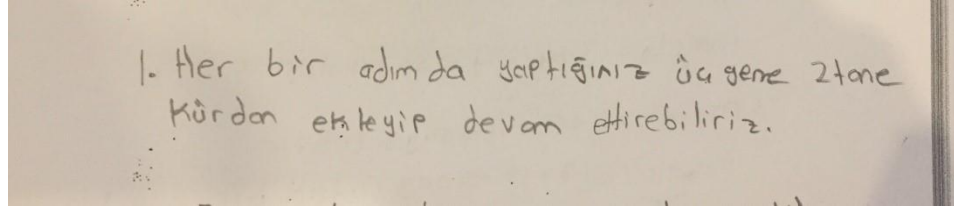 1. Her bir adımda yaptığınız üçgene 2 tane
Kürdan ekleyip devam ettirebiliriz.